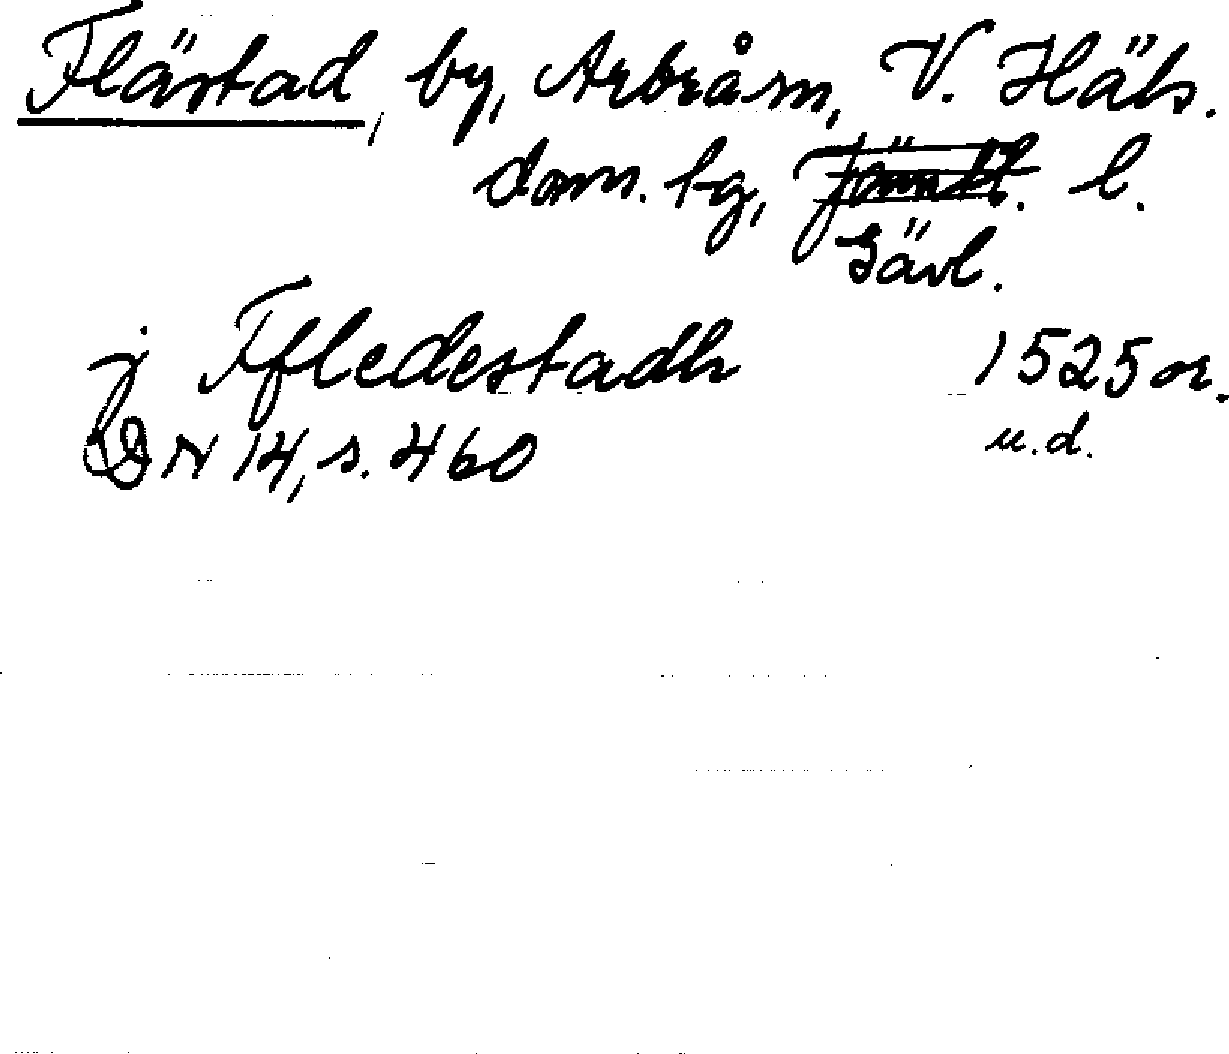 Flästad, by, Arbrå sn, V. Häls.
doms. tg, Jämtl. l.
Gävl.
j Ffledestadh 1525 or.
DN 14, s. 460 u.d.